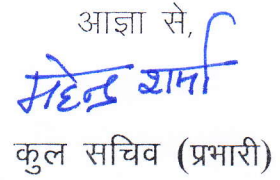 आज्ञा से,
महेन्द्र शर्मा
कुल सचिव (प्रभारी)